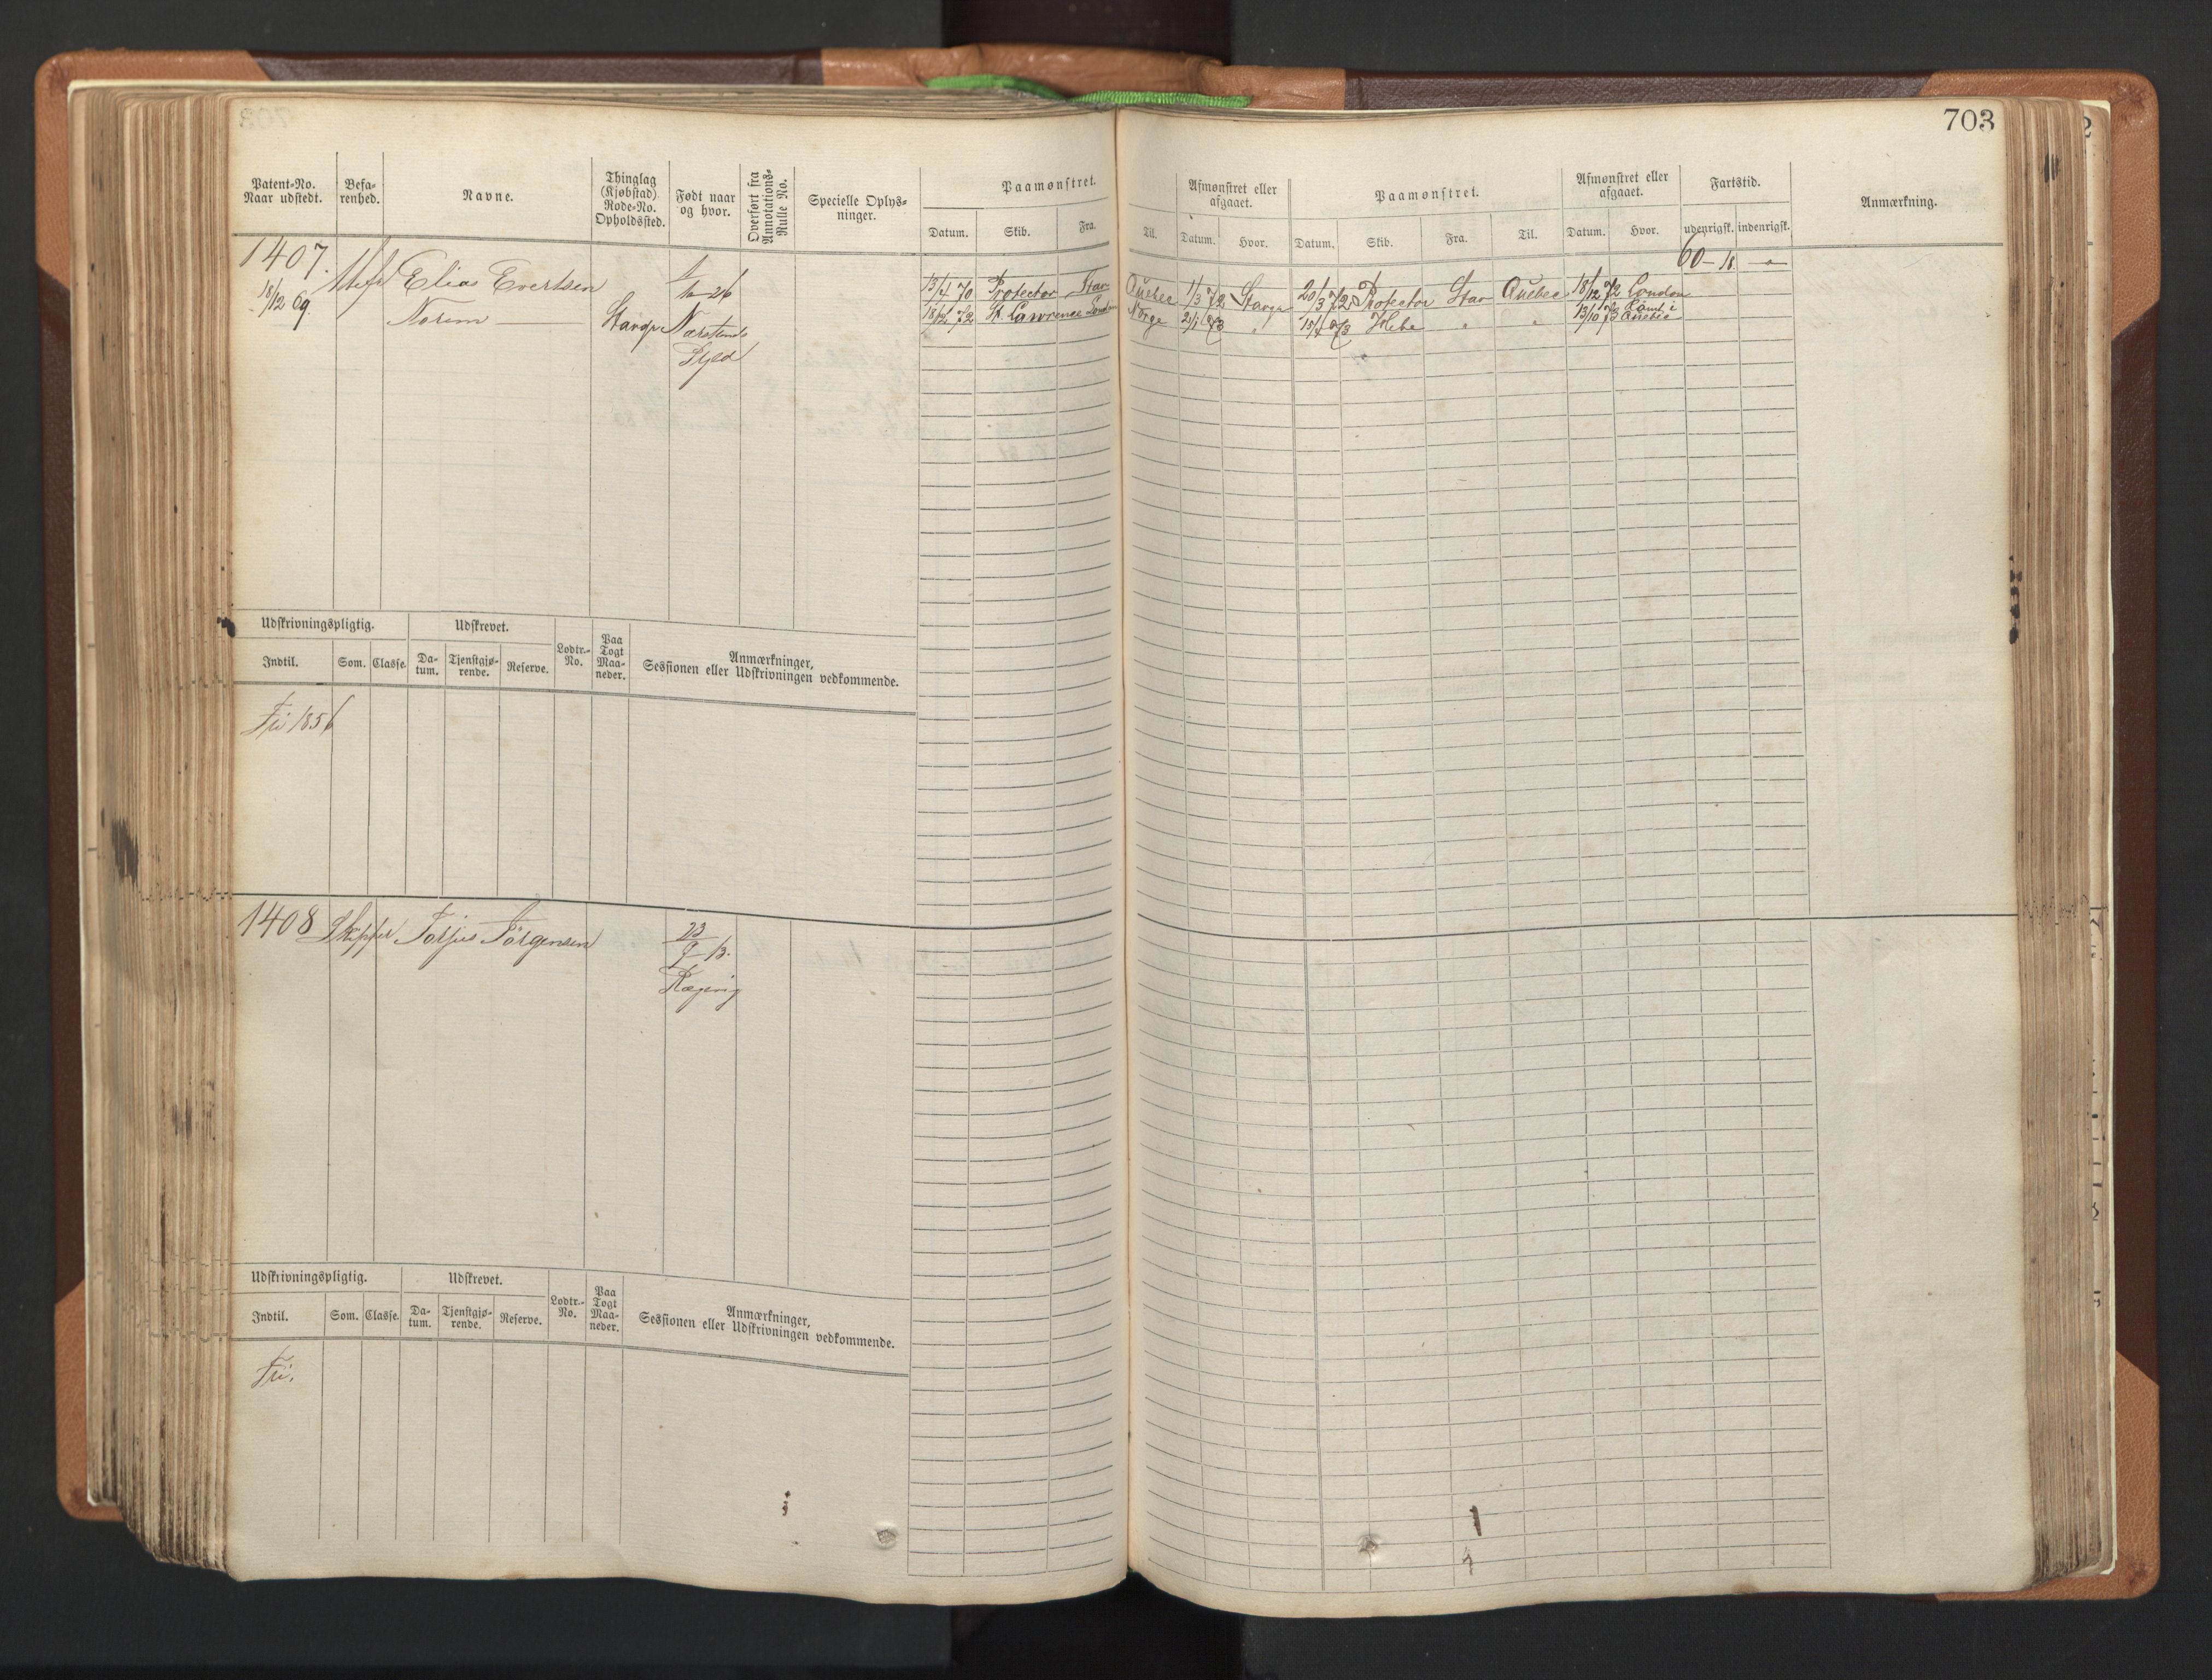 703
Patent-No.
Naar udstedt.
Befa-
renhed.
Navne.
Thinglag
(Kjøbstad).
Rode-No.
Opholdssted.
Født naar
og hvor.
Overført fra
Annotations-
Rulle No.
Specielle Oplys-
ninger.
Paamønstret.
Datum. Skib. Fra.
Til.
Afmønstret eller
afgaaet.
Datum. Hvor.
Paamønstret.
Datum. Skib. Fra. Til.
Afmønstret eller
afgaaet.
Datum. Hvor.
Fartstid.
udenrigsk. indenrigsk.
Anmærkning.
1407.
18/12 69
Elias Evertsen
Norem
Stavgr
26
Nærstrands
13/4 70 Protector Stav
Quebec 1/3 72 Stavgr 20/3 72 Protector Stav Quebec 18/12 72 London
60 - 18
18/12 72 St. Lawrence London
Norge 21/1 73 " 15/4 73 Hebe " " 13/10 73 Quebec
Udskrivningspligtig.
Udskrevet.
Indtil. Som. Classe.
Da-
tum.
Tjenstgjø-
rende.
Reserve.
Lodtr.-
No.
Paa
Togt
Maa-
neder.
Anmærkninger,
Sessionen eller Udskrivningen vedkommende.
Fri 1856
1408 Skipper Torjus Törgensen
23
9 - 13.
Rægevig
Udskrivningspligtig.
Udskrevet.
Indtil. Som. Classe.
Da-
tum.
Tjenstgjø-
rende.
Reserve.
Lodtr.-
No.
Paa
Togt
Maa-
neder.
Anmærkninger,
Sessionen eller Udskrivningen vedkommende.
Fri.